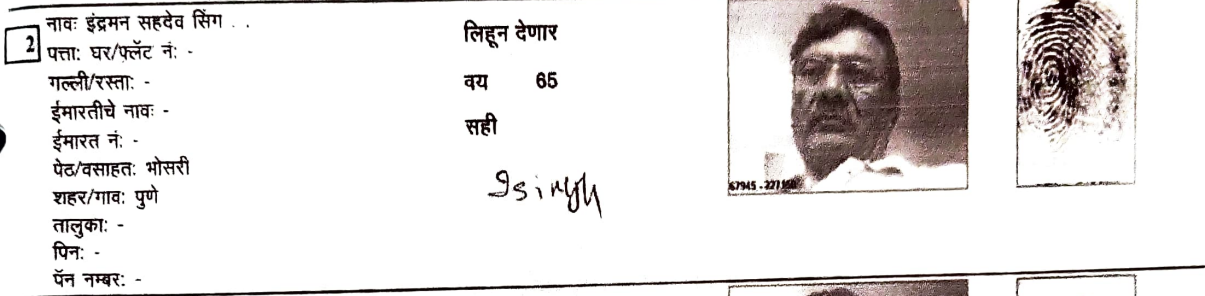 2
नावः इंद्रमन सहदेव सिंग . .
पत्ताः घर/फ्लॅट नंः -
गल्ली/रस्ताः -
ईमारतीचे नावः -
ईमारत नंः -
पेठ/वसाहतः भोसरी
शहर/गावः पुणे
तालुकाः -
पिनः -
पॅन नम्बरः -
लिहून देणार
वय 65
सही
Isingh
67945 -